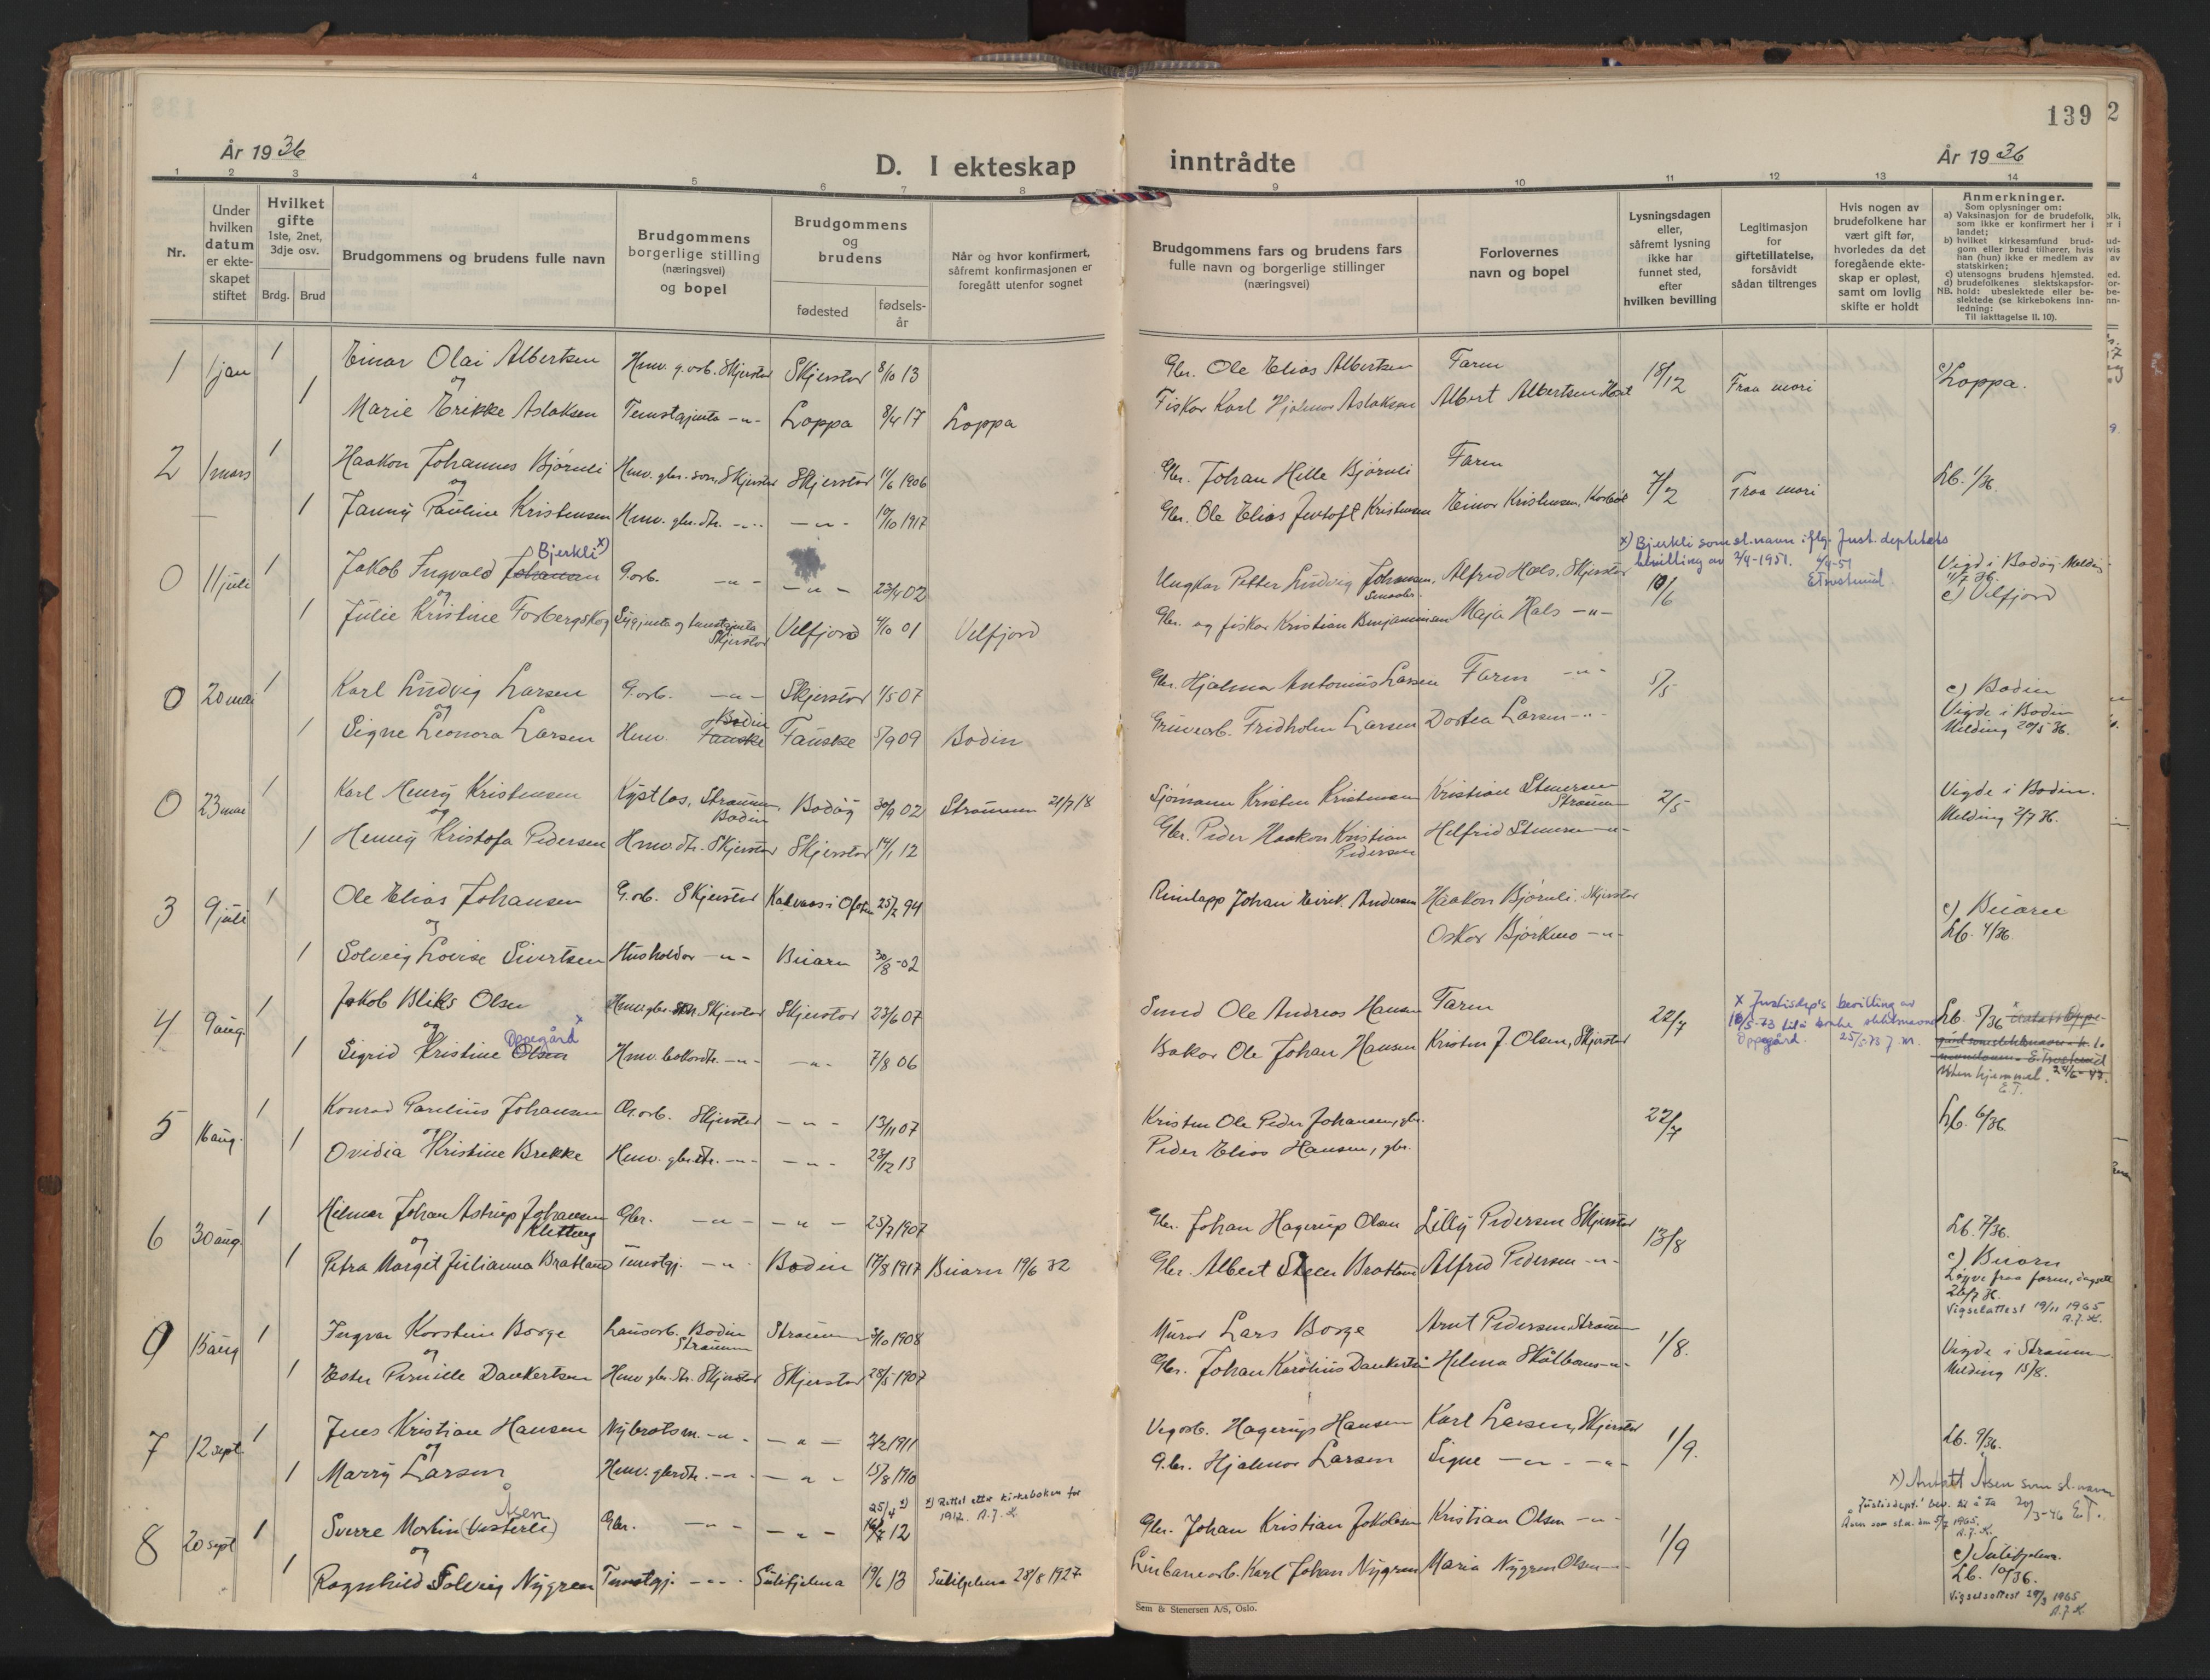 139
År 1936
D. I ekteskap inntrådte
År 1936
1 2 3 4 5 6 7 8 9 10 11 12 13 14
Nr.
Under hvilken datum er ekteskapet stiftet
Hvilket gifte
1ste, 2net, 3dje osv.
Brdg. Brud
Brudgommens og brudens fulle navn
Brudgommens borgerlige stilling (næringsvei) og bopel
Brudgommens og brudens
fødested
fødselsår
Når og hvor konfirmert, såfremt konfirmasjonen er foregått utenfor sognet
Brudgommens fars og brudens fars fulle navn og borgerlige stillinger (næringsvei)
Forlovernes navn og bopel
Lysningsdagen eller, såfremt lysning ikke har funnet sted, efter hvilken bevilling
Legitimasjon for giftetillatelse, forsåvidt sådan tiltrenges
Hvis nogen av brudefolkene har vært gift før, hvorledes da det foregående ekteskap er opløst, samt om lovlig skifte er holdt
Anmerkninger.
Som oplysninger om:
a) Vaksinasjon for de brudefolk, som ikke er konfirmert her i landet;
b) hvilket kirkesamfund brudgom eller brud tilhører, hvis han (hun) ikke er medlem av statskirken;
c) utensogns brudens hjemsted.
d) brudefolkenes slektskapsforhold: ubeslektede eller beslektede (se kirkebokens innledning:
NB.
Til iakttagelse II. 10).
1 1 jan 1 Einar Olai Albertsen Skjerstad 8/10 13 Gbr. Ole Elias Albertsen Faren 18/12 Fraa mori c) Loppa.
og
1 Marie Erikke Aslaksen Tenestgjenta -"- Loppa 8/4 17 Loppa Fisker Karl Hjalmar Aslaksen Albert Albertsen
2 1 mars 1 Haakon Johannes Bjørnli Hmv. gbr. son, Skjerstad Skjerstad 11/6 1906 Gbr. Johan Hille Bjørnli Faren 7/2 Fraa mori Lb. 1/36.
og
1 Janny Pauline Kristensen Hmv. gbr. dtr. -"- -"- 19/10 1917 Gbr. Ole Elias Jentoft Kristensen Einar Kristensen,
x) Bjerkli som sl.navn iflg. Just.deptets bevilling av 2/4-1951.
0 11 juli 1 Jakob Ingvald Johansen Bjerkli x) G.arb. -"- -"- 23/4 02 Ungkar Petter Ludvig Johansen, Alfred Hals, Skjerstad 10/6 Vigd i Bodøy. Melding 11/7 36.
og
1 Julie Kristine Forbergskog Sygjenta og tenestgjenta Skjerstad Velfjord 4/10 01 Velfjord Gbr. og fisker Kristian Benjaminsen Maja Hals -"- c) Velfjord
0 20 mai 1 Karl Ludvig Larsen G.arb. -"- Skjerstad 1/5 07 Gbr. Hjalmar Antonius Larsen Faren -"- 5/5 c) Bodin
og
1 Signe Leonora Larsen Hmv. Bodin Fauske Fauske 5/9 09 Bodin Gruvearb. Fridholm Larsen Dortea Larsen -"- Vigde i Bodin Melding 20/5 36.
0 23 mai 1 Karl Henry Kristensen Straumen, Bodin Bodøy 30/9 02 Straumen 21/7 18 Sjømann Kristen Kristensen Kristian Stenersen Straumen 2/5 Vigde i Bodin. Melding 2/7 36.
og
1 Henny Kristofa Pedersen Hmv. dtr. Skjerstad Skjerstad 14/1 12 Gbr. Peder Haakon Kristian Pedersen Helfrid Stenersen -"-
3 9 juli 1 Ole Elias Johansen G.arb. Skjerstad 25/2 94 Johan Eirik Andersen Haakon Bjørnli, Skjerstad c) Beiarn
og
1 Solveig Lovise Sivertsen Husholdar -"- Beiarn 30/8-02 Oskar Bjørkmo -"- Lb. 4/36.
4 9 aug. 1 Jakob Bliks Olsen Skjerstad Skjerstad 23/6 07 Smed Ole Andreas Hansen Faren 22/7 Lb. 5/36
x Justisdep's bevilling av 18/5-73 til å bruke slektsnavnet Oppegård. 25/5-73 J.M.
og
1 Sigrid Kristine Olsen Oppegård x Hmv. -"- -"- 7/8 06 Bakar Ole Johan Hansen Kristen J. Olsen, Skjerstad
Uten hjemmel. E.T.
5 16 aug. 1 Konrad Parelius Johansen G.arb. Skjerstad -"- 13/11 07 Kristen Ole Peder Johansen, gbr. 22/7 Lb. 6/36.
og
1 Ovidia Kristine Brekke Hmv. gbr. dtr. -"- -"- 23/12 13 Peder Elias Hansen, gbr.
6 30 aug. 1 Hilmar Johan Astrup Johansen Klettberg Gbr. -"- -"- 25/7 1907 Gbr. Johan Hagerup Olsen Lilly Pedersen Skjerstad 13/8 Lb. 7/36.
og
1 Petra Margit Julianna Bratland Tenestgj. -"- Bodin 17/8 1917 Beiarn 19/6 32 Gbr. Albert Steen Bratland Alfred Pedersen -"- c) Beiarn
Løyve fraa faren, dagsett 26/7 36.
Vigselattest 19/11 1965 A.J.K.
0 15 aug 1 Ingvar Korstein Børge Bodin Straumen Straumen 3/10 1908 Murar Lars Børge Arnt Pedersen Straumen 1/8. Vigde i Straumen
og
1 Ester Pernille Dankertsen Hmv. gbr. dtr. Skjerstad Skjerstad 28/5 1907 Gbr. Johan Karolius Dankertsen Helma Skålbones -"- Melding 15/8.
7 12 sept. 1 Jens Kristian Hansen Nybrotsm. -"- -"- 7/2 1911 Vegarb. Hagerup Hansen Karl Larsen, Skjerstad 1/9. Lb. 9/36.
og
1 Marry Larsen Hmv. gbr. dtr. -"- -"- 15/8 1910 G.br. Hjalmar Larsen Signe -"- -"-
x) Antatt Åsen som sl.navn 20/3-46 E.T.
Justisdept.' bev. til å ta Åsen som sl.n. den 5/7 1965. A.J.K.
8 20 sept 1 Sverre Martin (Vesterli) Åsen Gbr. -"- -"- 25/4 x) 12 x) Rettet etter kirkeboken for 1912. A.J.K. Gbr. Johan Kristian Jakobsen Kristian Olsen -"- 1/9
og
1 Ragnhild Solveig Nygren Tenestgj. -"- Sulitjelma 19/6 13 Sulitjelma 28/8 1927 Linbanearb. Karl Johan Nygren Maria Nygren Olsen -"- c) Sulitjelma. Lb. 10/36.
Vigselsattest 29/3 1965 A.J.K.
Sem & Stenersen A/S, Oslo.